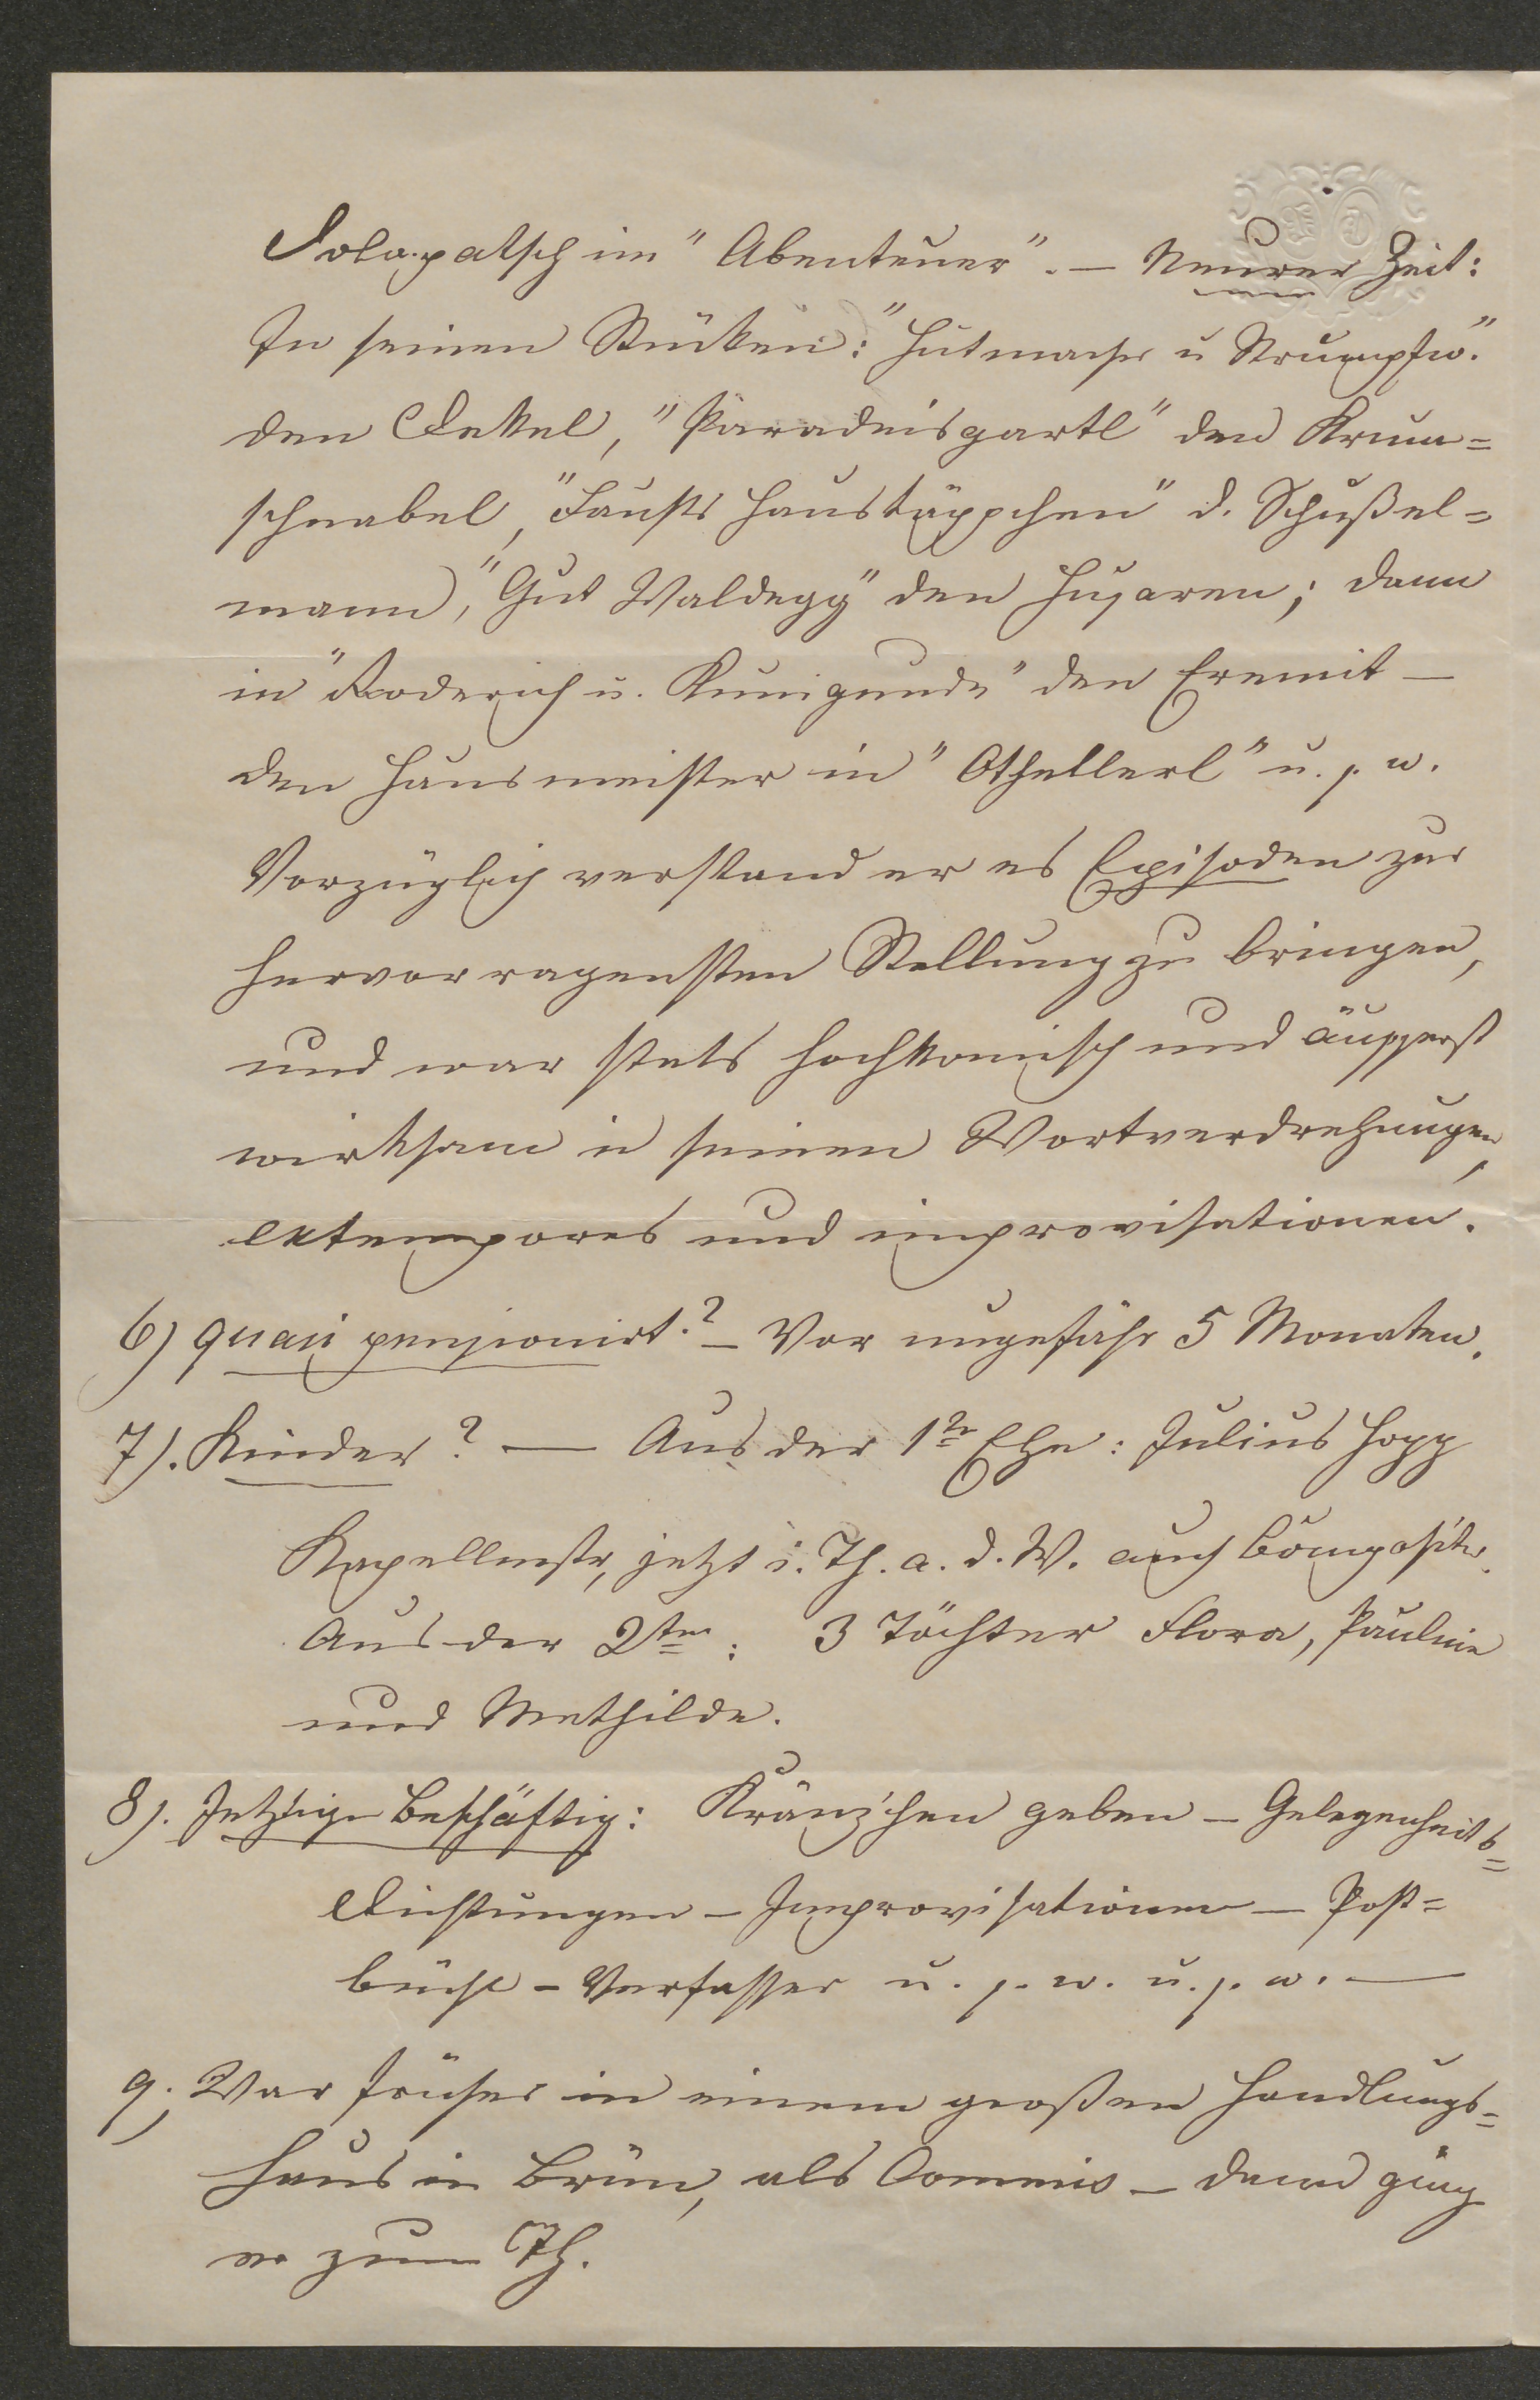 Dolopatsch im "Abenteuer". — Neurer Zeit:
In seinen Stücken: "Hutmacher u Strumpfw."
den Dekkel, "Paradeisgartl" den Krum=
schnabel, "Fausts Hauskäppchen" d. Schußel=
mann, "Gut Waldegg" den Husaren; dann
in "Roderich u. Kunigunde" den Eremit —
den Hausmeister in "Othellerl" u. s. w.
Vorzüglich verstand er es Episoden zur
hervorragensten Stellung zu bringen,
und war stets hochkomisch und äusserst
wirksam in seinen Wortverdrehungen,
extempores und improvisationen.
6) quasi pensionirt? — Vor ungefähr 5 Monaten.
7). Kinder? — Aus der 1tn Ehe: Julius Hopp
Kapellmstr, jetzt i. Th. a. d. W. auch Compositr.
Aus der 2ten: 3 Töchter Flora, Pauline
und Mathilde.
8). Jetzige Beschäftig: Kränzchen geben — Gelegenheits=
Dichtungen — Improvisationen — Post=
büchl — Verfasser u. s. w. u. s. w. —
9. War früher in einem großen Handlungs=
haus in Brünn, als Commis — dann ging
er zum Th.